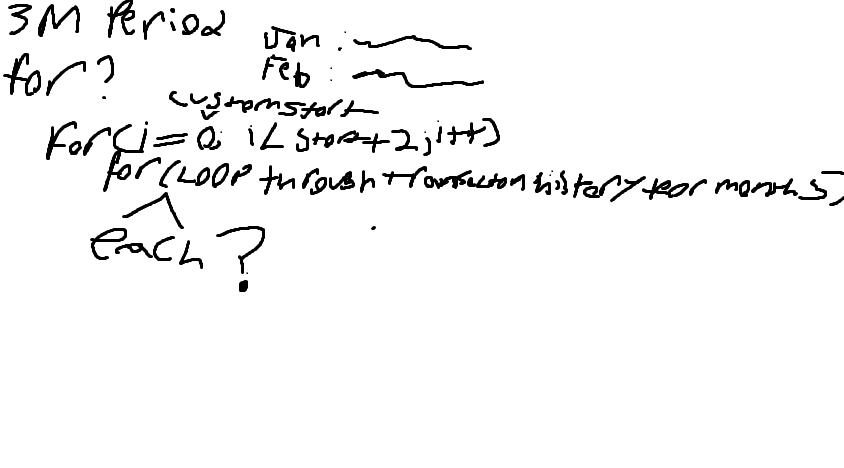 3M Period
Jan :
Feb :
for?
customstart
For(i=0; i< start+2; i++)
for(LOOP through transaction history for months)
each?